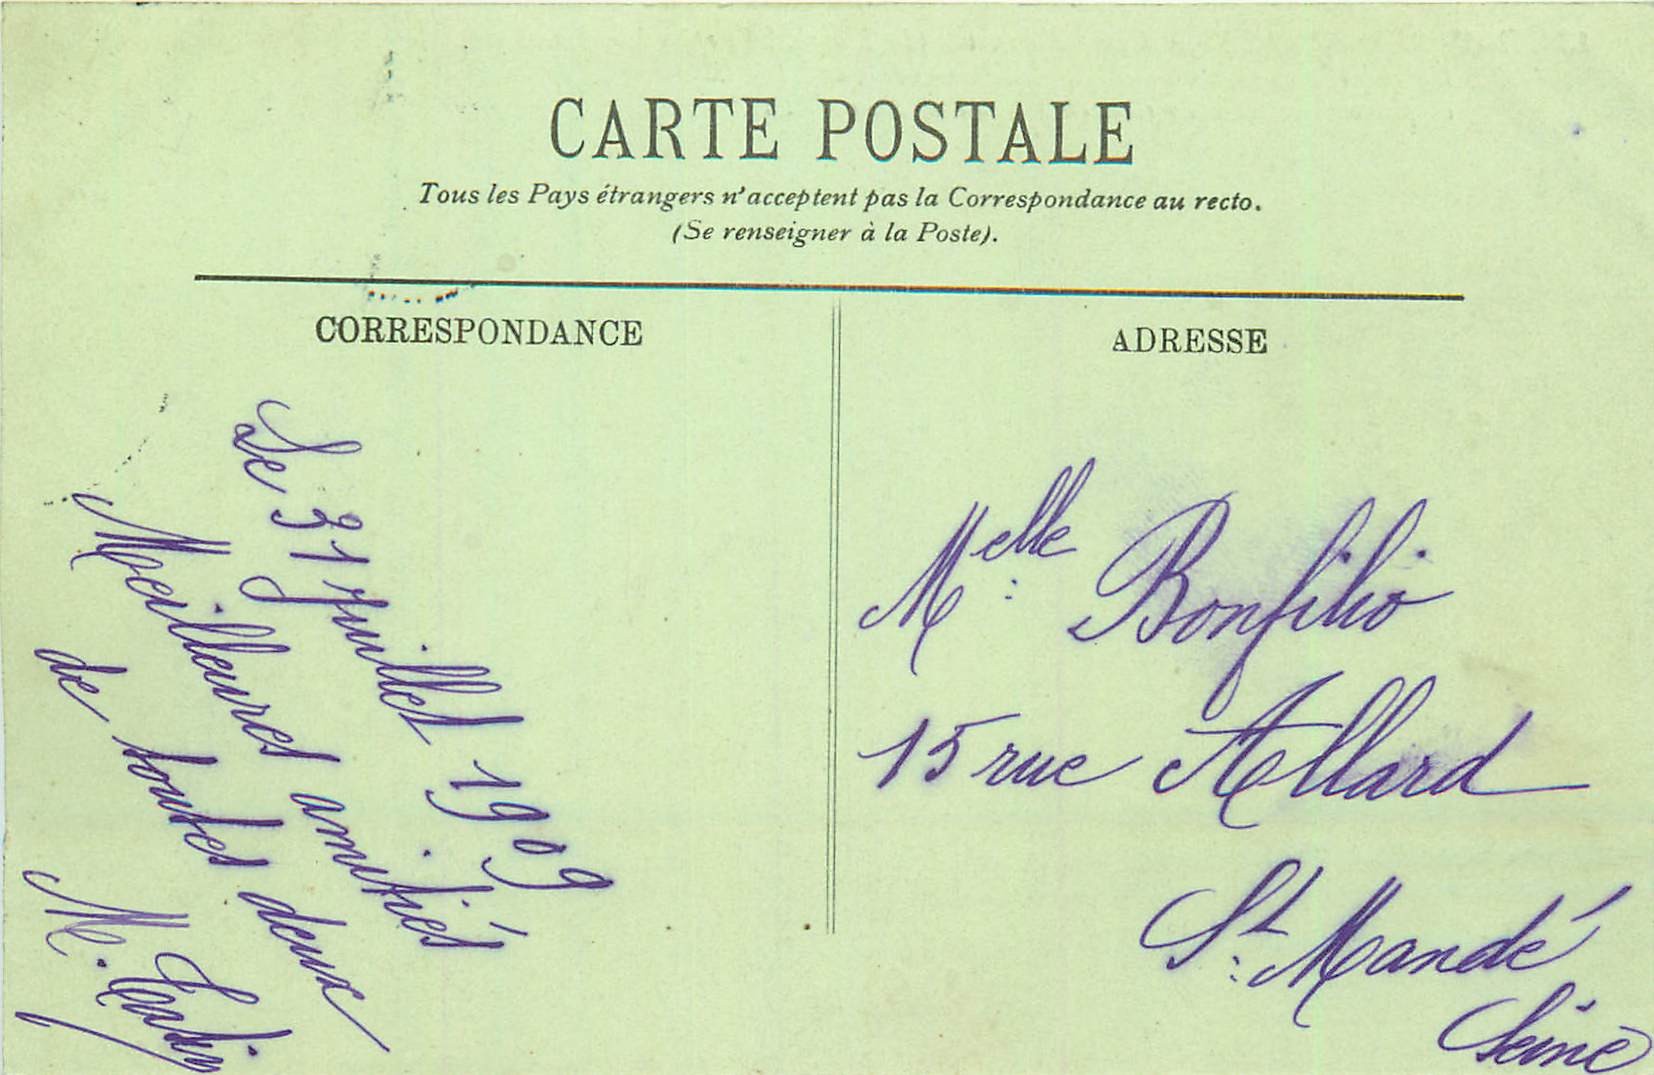 CARTE POSTALE
Tous les Pays étrangers n'acceptent pas la Correspondance au recto.
(Se renseigner à la Poste).
CORRESPONDANCE
Le 31 Juillet 1909
Meilleures amitiés
de toutes deux
M.
ADRESSE
Melle Bonfilio
15 rue Allard
St. Mandé
Seine